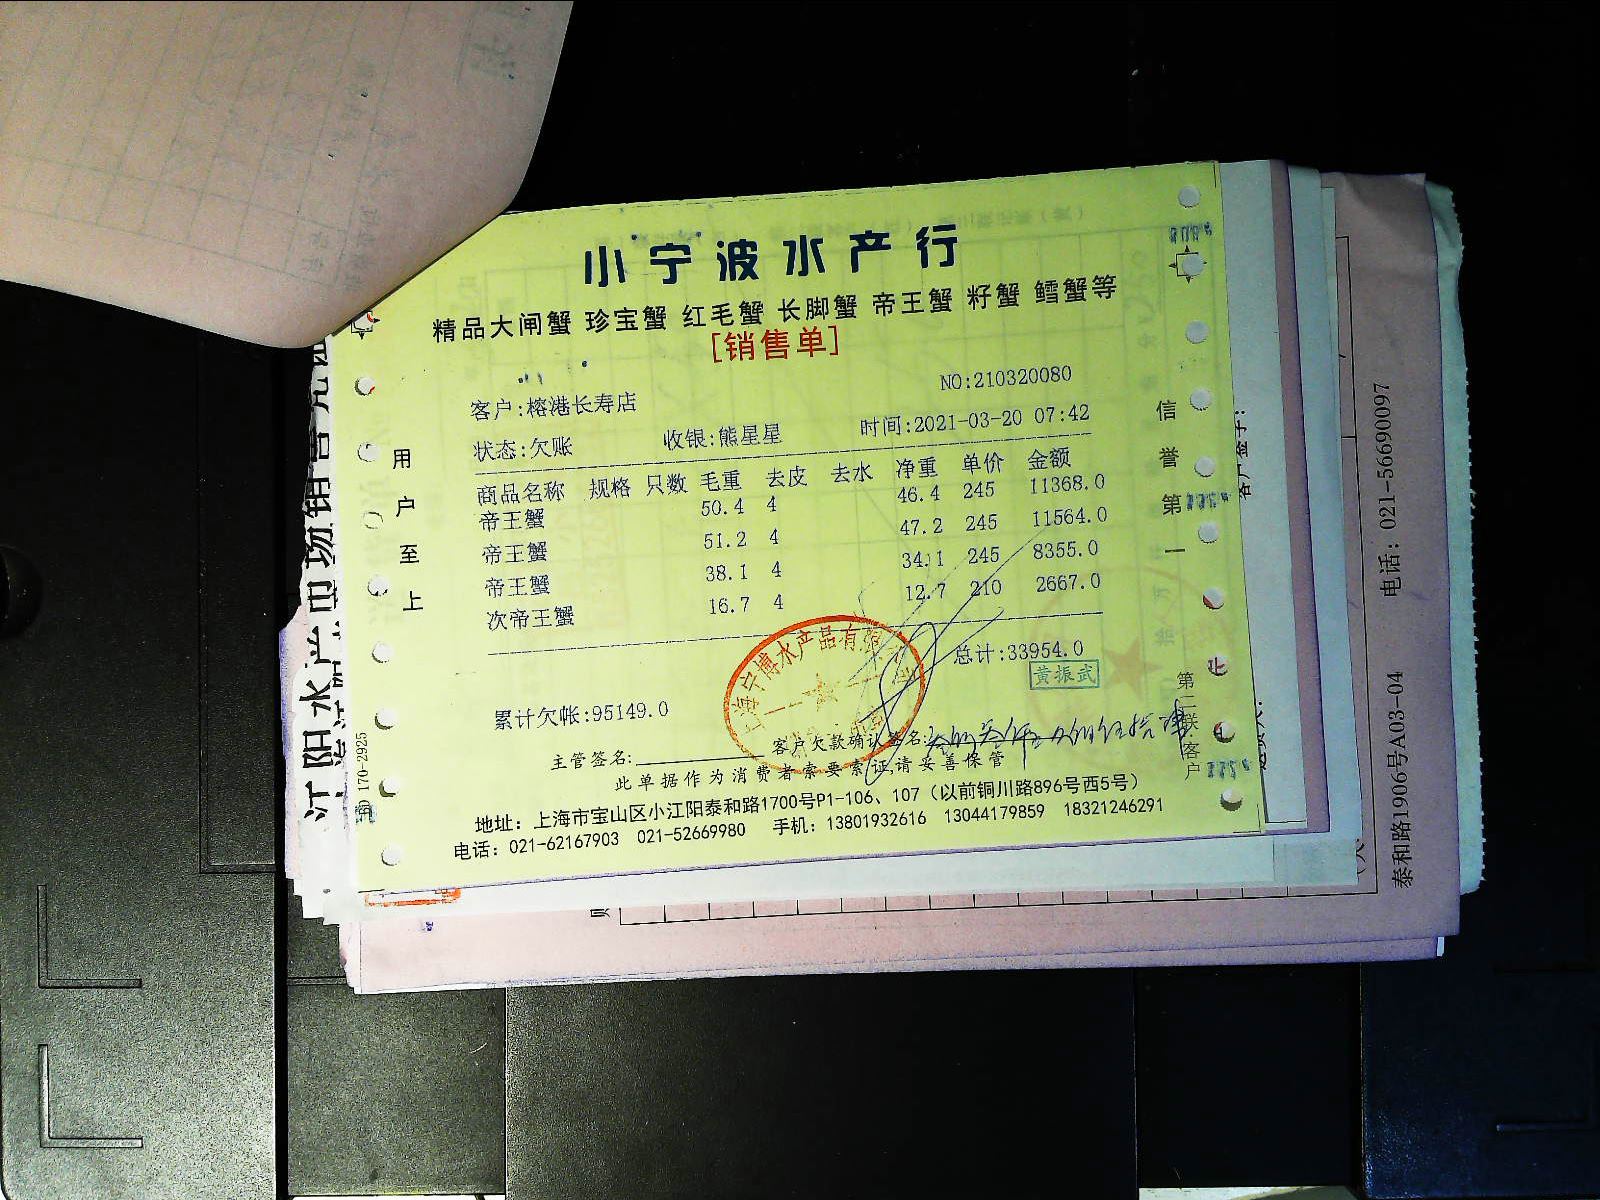 小宁波水产行
精品大闸蟹 珍宝蟹 红毛蟹 长脚蟹 帝王蟹 籽蟹 鳕蟹等
[销售单]
NO:210320080
客户:榕港长寿店
状态:欠账 收银:熊星星 时间:2021-03-20 07:42
商品名称 规格 只数 毛重 去皮 去水 净重 单价 金额
帝王蟹 50.4 4 46.4 245 11368.0
帝王蟹 51.2 4 47.2 245 11564.0
帝王蟹 38.1 4 34.1 245 8355.0
次帝王蟹 16.7 4 12.7 210 2667.0
总计:33954.0
黄振武
累计欠帐:95149.0
主管签名: 客户欠款确认签名:
此单据作为消费者索要索证,请妥善保管
地址：上海市宝山区小江阳泰和路1700号P1-106、107（以前铜川路896号西5号）
电话：021-62167903 021-52669980 手机：13801932616 13044179859 18321246291
用户至上
信誉第一
第二联:客户
170-2925
上海宁博水产品有限
江阳水产
客户签字：
电话：021-56690097
泰和路1906号A03-04